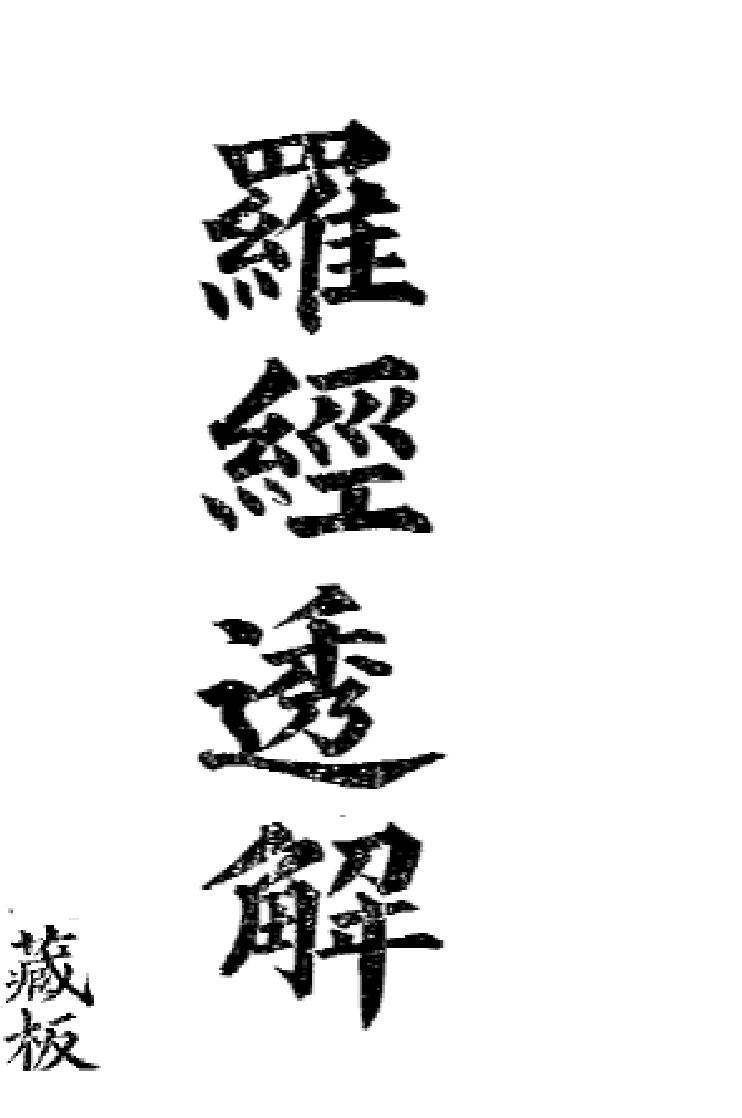 羅經透解
藏板